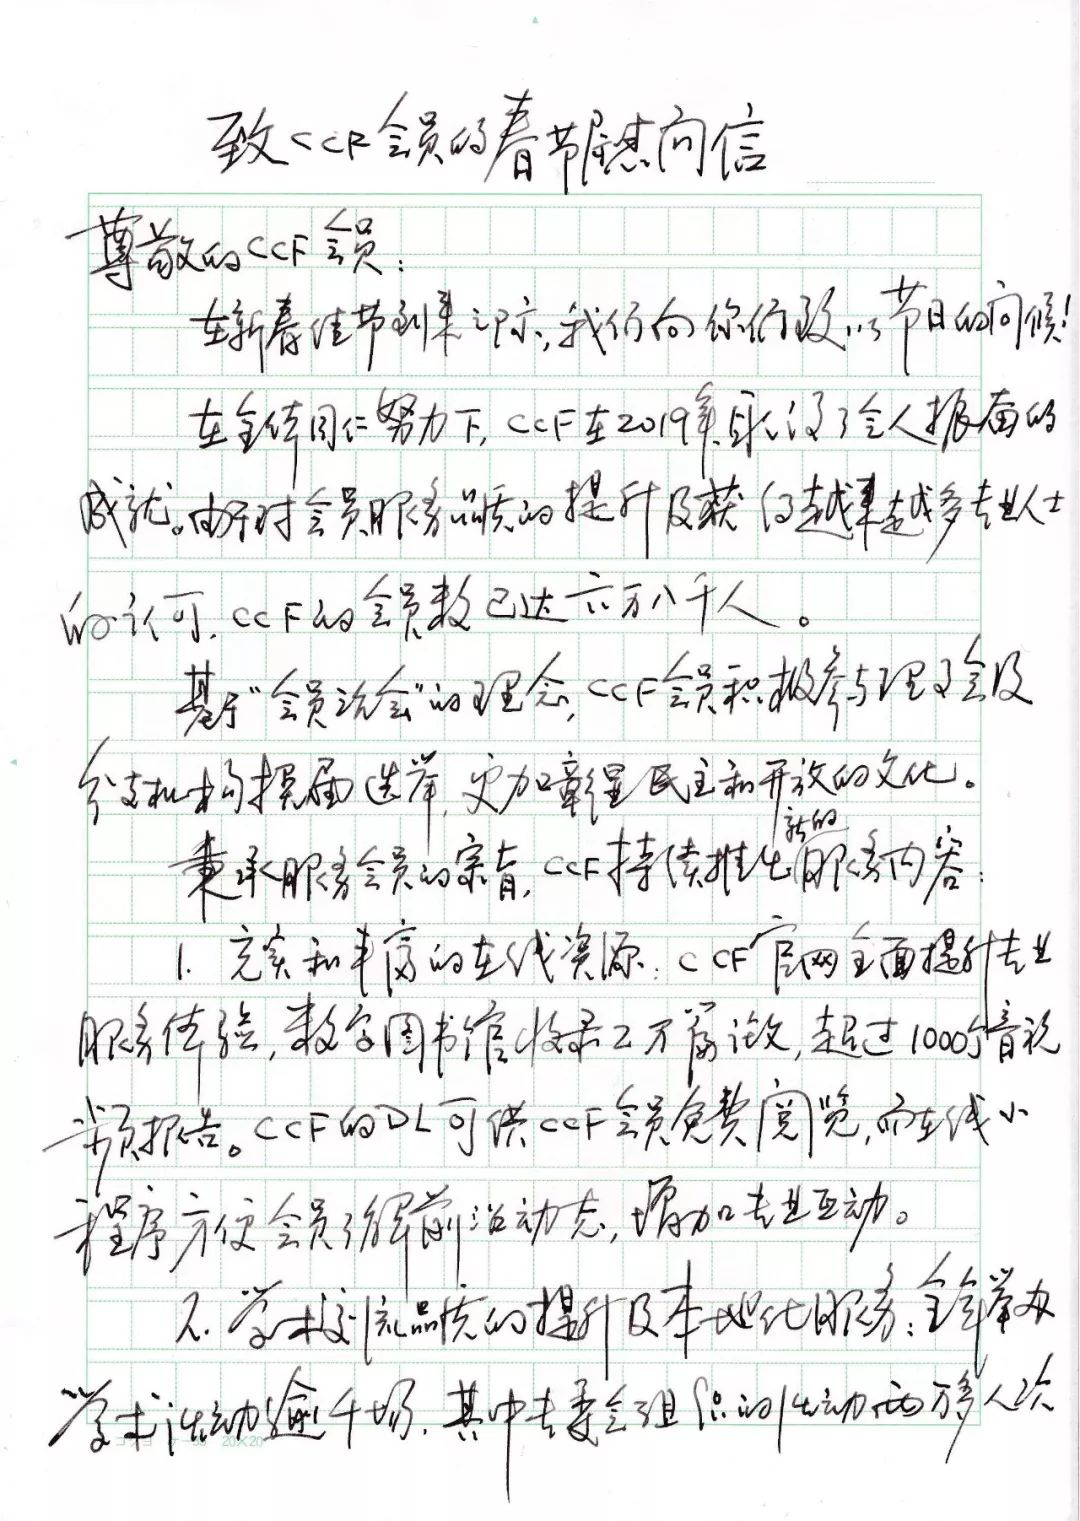 致CCF会员的春节慰问信
尊敬的CCF会员：
在新春佳节到来之际，我们向你们致以节日的问候！
在全体同仁努力下，CCF在2019年取得了令人振奋的
成就。由于对会员服务品质的提升及获得越来越多专业人士
的认可，CCF的会员数已达六万八千人。
基于“会员治会”的理念，CCF会员积极参与理事会及
分支机构换届选举，更加彰显民主和开放的文化。
秉承服务会员的宗旨，CCF持续推出新的服务内容：
1. 充实和丰富的在线资源：CCF官网全面提升专业
服务体验，数字图书馆收录2万篇论文，超过1000个音视
频报告。CCF的DL可供CCF会员免费阅览，而在线小
程序方便会员了解前沿动态，增加专业互动。
2. 学术交流品质的提升及本地化服务：全年举办
学术活动逾千场，其中专委会组织的活动两万多人次
20×20